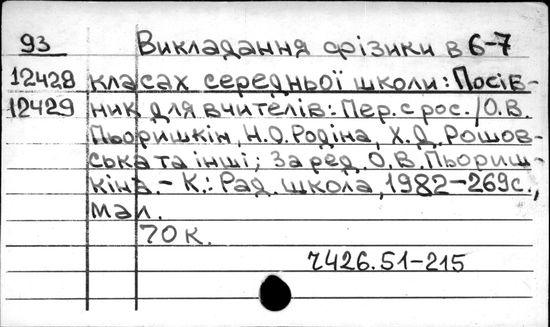 93 Викладання фізики в 6-7
12428 класах середньої школи: Посіб-
12429 ник для вчителів: Пер. с рос./О.В.
Пьоришкін, Н.О.Родіна, Х.Д.Рошов-
ська та інші; За ред. О.В.Пьориш-
кіна.- К.: Рад. школа, 1982-269с.,
мал.
70к.
ч426.51-215